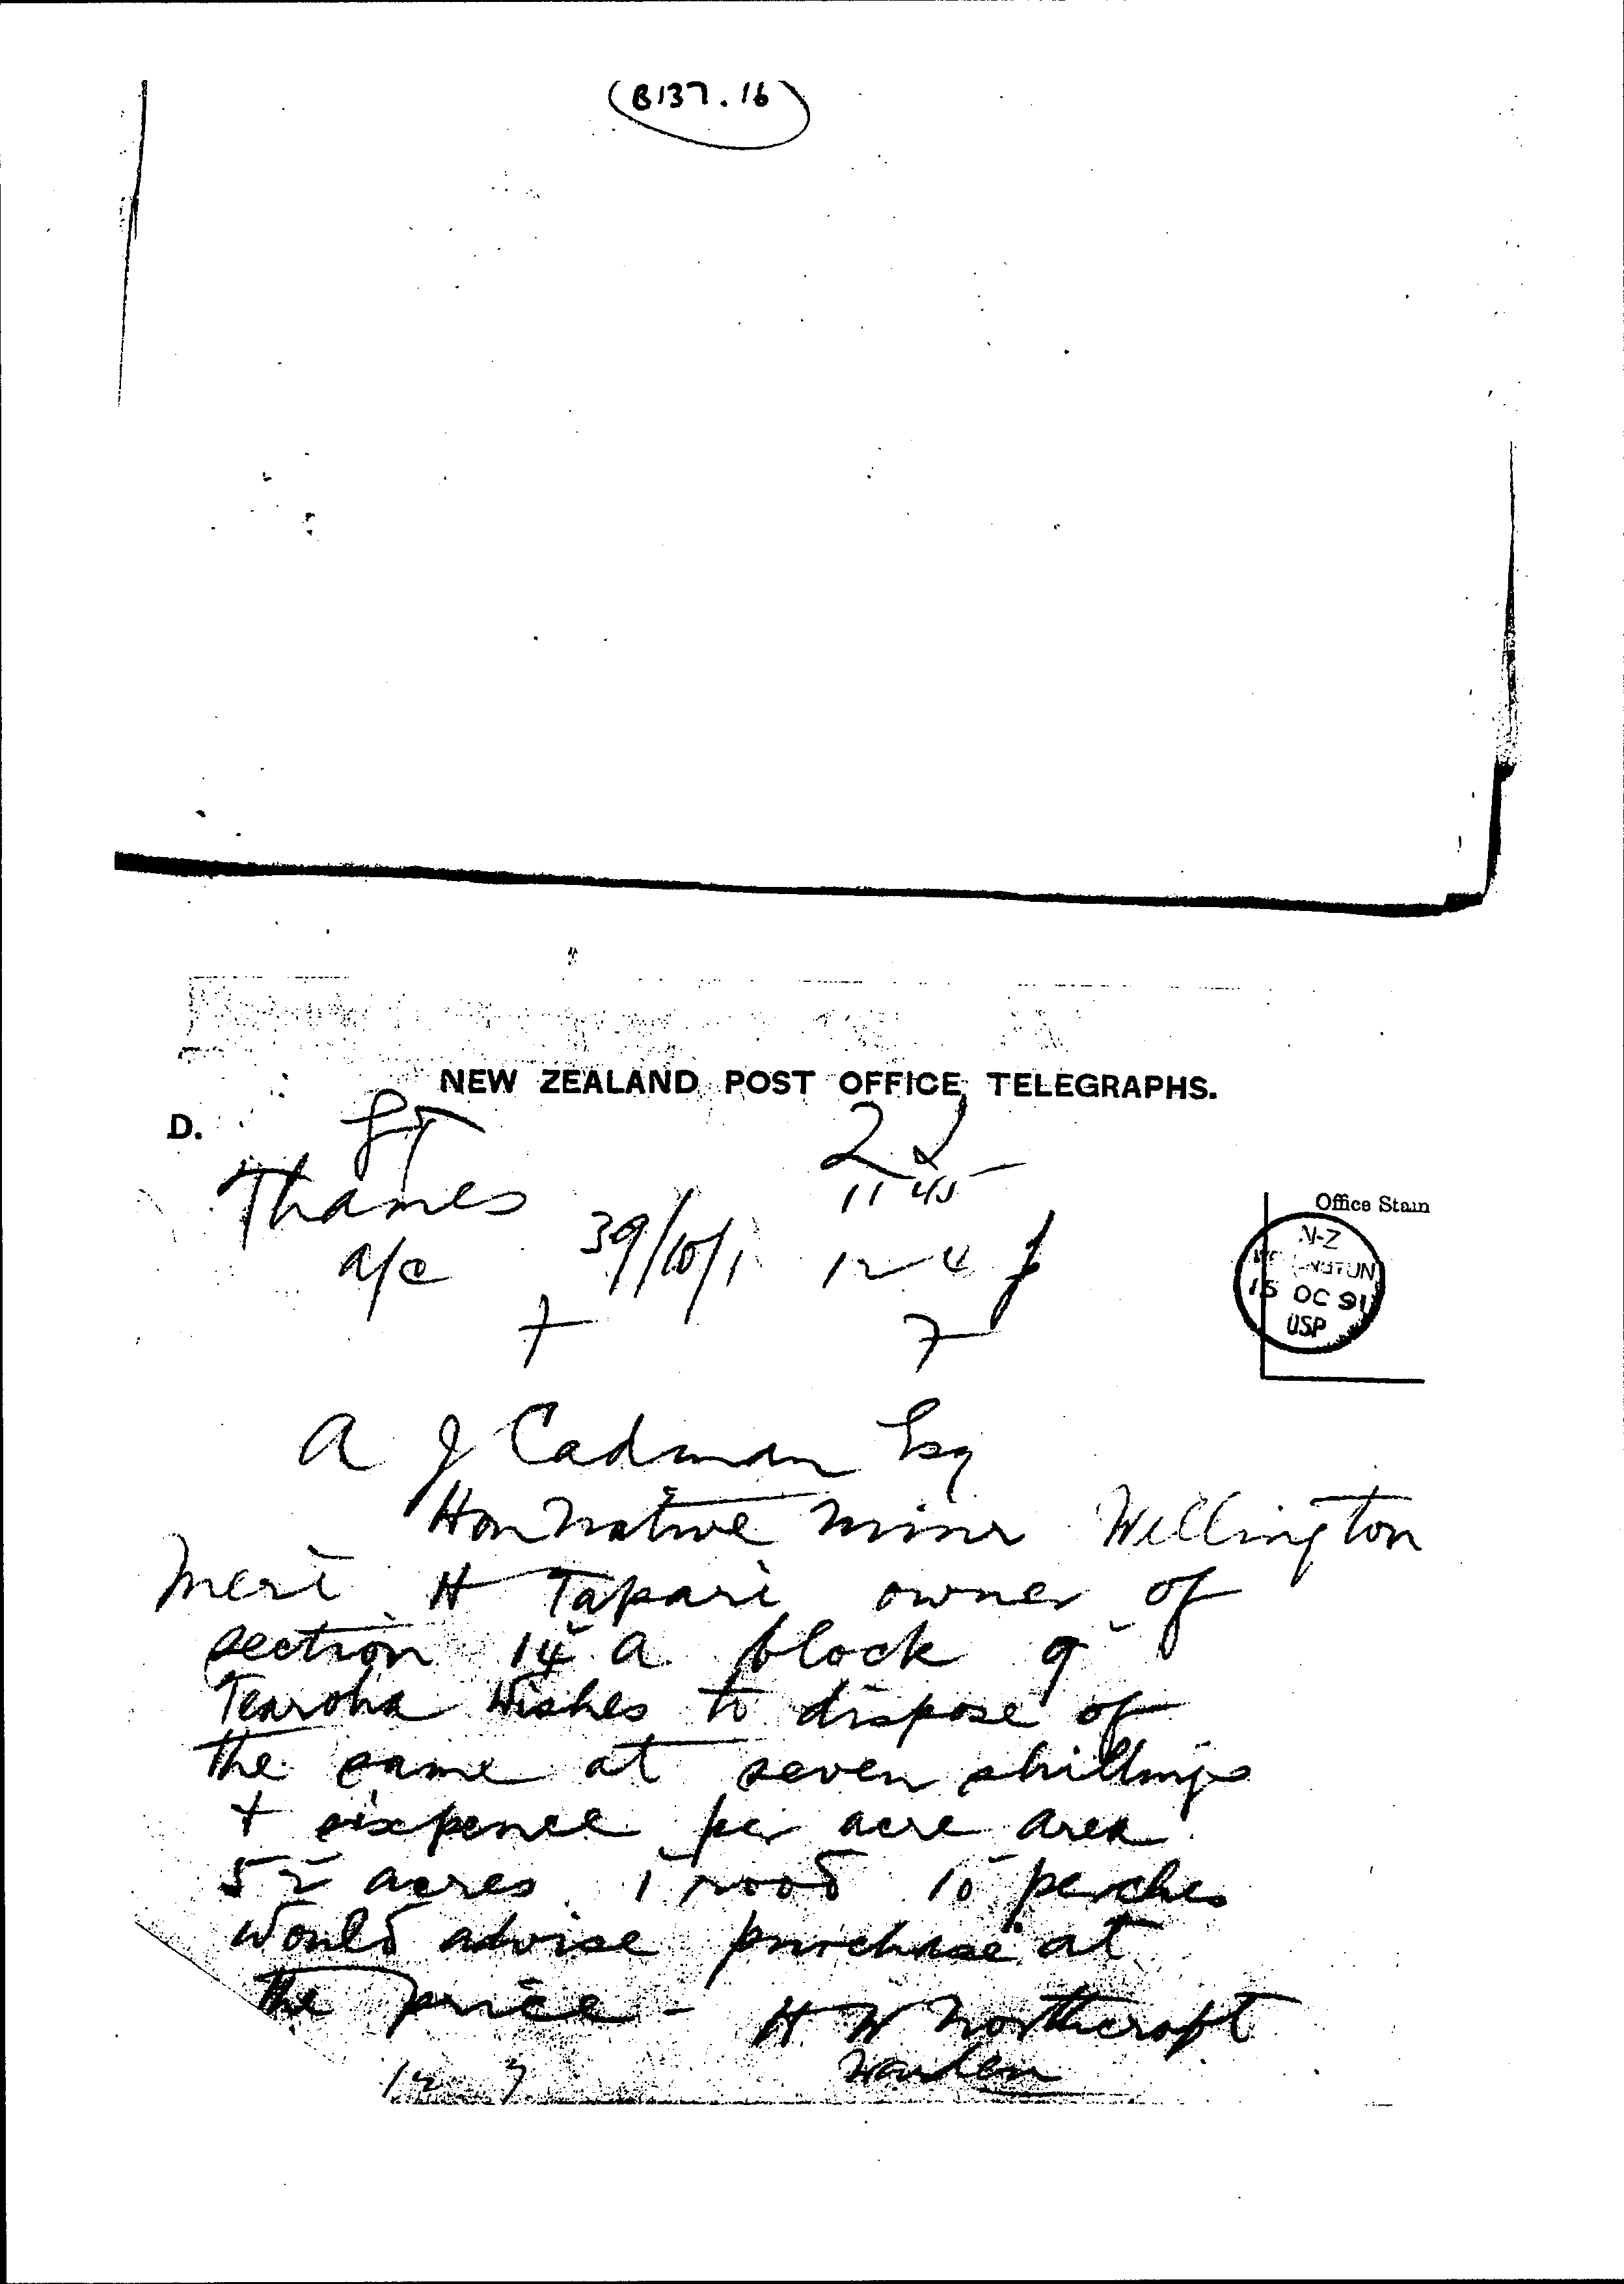 (B137.16)
NEW ZEALAND POST OFFICE TELEGRAPHS.
D.
Thames
11 45
a/c 39/10/1 12 4
Office Stam
N-Z
15 OC 91
A J Cadman Esq
Hon Native Minr Wellington
Meri H Tapari owner of
section 14 a block 9
Tearoha wishes to dispose of
the same at seven shillings
+ sixpence per acre area
52 acres 1 rood 10 perches
would advise purchase at
the price - H W Northcroft
Warden